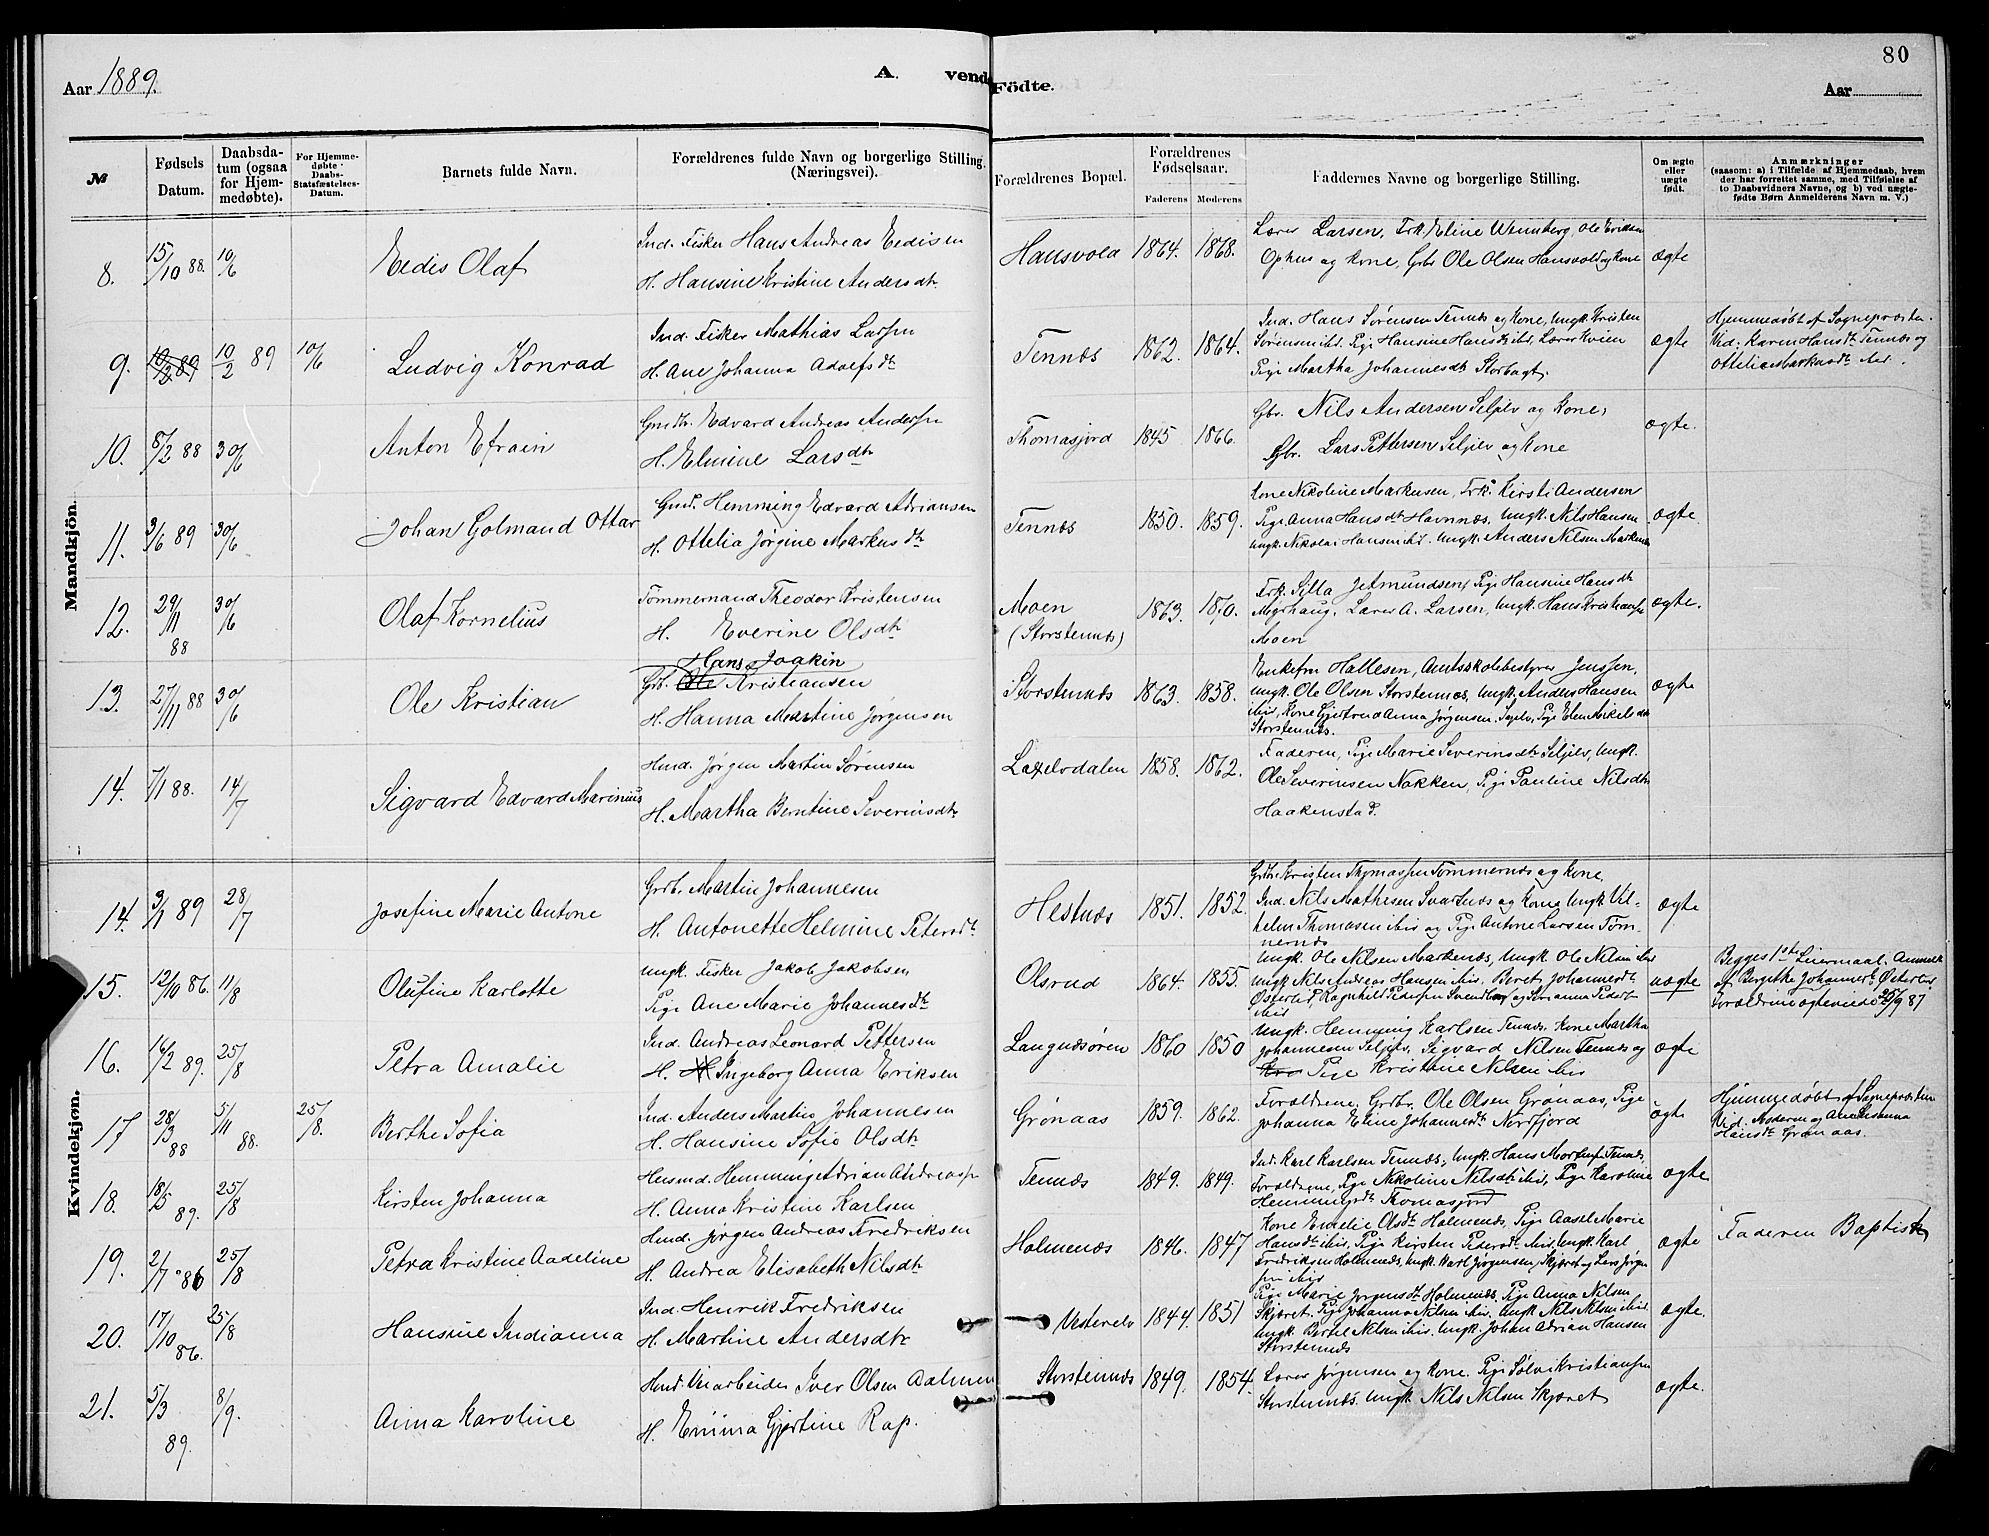 Aar 1889.
A. vende
Födte.
80
Aar
№
Fødsels Datum.
Daabsdatum (ogsaa for Hjemmedøbte).
For Hjemmedøbte Daabs-Statsfæstelses-Datum.
Barnets fulde Navn.
Forældrenes fulde Navn og borgerlige Stilling. (Næringsvei).
Forældrenes Bopæl.
Forældrenes Fødselsaar.
Faderens
Moderens
Faddernes Navne og borgerlige Stilling.
Om ægte eller uægte født.
Anmærkninger
(saasom: a) i Tilfælde af Hjemmedaab, hvem
der har forrettet samme, med Tilføielse af
to Daabsvidners Navne, og b) ved uægte-
fødte Børn Anmelderens Navn m. V.)
Mandkjön.
8. 15/10 88. 10/6 Eedis Olaf
Ind. Fisker Hans Andreas Eedisen
H. Hansine Kristine Andersdtr
Hansvold 1864. 1868.
Lærer Larsen, Frk. Eline Wennberg, Ole Eriksen
Ophus og Kone, Gbr. Ole Olsen Hansvold og Kone
ægte
9. 10/2 89 10/2 89 10/6 Ludvig Konrad
Ind. Fisker Mathias Larsen
H. Ane Johanna Adolfsdtr
Tennæs 1862. 1864.
Ind. Hans Sørensen Tennæs og Kone, Ungk. Kristen
Sørensen ibid. Pige Hansine Hansdtr ibid. Lærer Kvien
Pige Martha Johannesdtr Storbagt.
ægte
Hjemmedøbt af Sognepræsten.
Vid: Karen Hansdtr Tennæs og
Ottelia Markusdtr ibid.
10. 8/2 88 30/6 Anton Efraim
Gmdr. Edvard Andreas Andersen
H. Elmine Larsdtr
Thomasjord 1845 1866.
Gbr. Nils Andersen Seljelv og Kone,
Gbr. Lars Pettersen Seljelv og Kone
ægte.
11. 3/6 89 30/6 Johan Golmand Ottar
Gmd. Hemming Edvard Adriansen
H. Ottelia Jørgine Markusdtr
Tennæs 1850. 1859.
Kone Nikoline Markusen, Frk. Kirsti Andersen
Pige Anna Hansdtr Havnnæs, Ungk. Nils Hansen
Ungk. Nikolai Hansen ibd. Ungk. Anders Nilsen Markenæs
ægte.
12. 29/11 88 30/6 Olaf Kornelius
Tømmermand Theodor Kristensen
H. Everine Olsdtr
Moen (Storstennæs) 1863. 1870.
Frk. Silla Jetmundsen, Pige Hansine Hansdtr
Myrhaug, Lærer A. Larsen, Ungk. Hans Kristiansen
Moen
ægte.
13. 27/11 88 30/6 Ole Kristian
Hans Joakin
Grb. Ole Kristiansen
H. Hanna Martine Jørgensen
Storstennæs 1863. 1858.
Enkefru Hallesen, Amtsskolebestyrer Jenssen,
Ungk. Ole Olsen Storstennæs, Ungk. Anders Hansen
ibid, Kone Gjertrud Anna Jørgensen, Pige Elen Mikelsdtr
Storstennæs.
ægte
14. 7/1 88. 14/7 Sigvard Edvard Marinius
Hmd. Jørgen Martin Sørensen
H. Martha Berntine Severinsdtr
Laxelvdalen 1858. 1862.
Faderen, Pige Marie Severinsdtr Seljelv, Ungk.
Ole Severinsen Nakken, Pige Pauline Nilsdtr
Haakenstad.
Kvindekjøn.
14. 3/1 89 28/7 Josefine Marie Antone
Grdb. Martin Johannesen
H. Antonette Helmine Petersdtr
Hestnæs 1851. 1852.
Grdb. Kristen Thomassen Tømmernæs og Kone,
Ind. Nils Mathisen Svartnæs og Kone Ungk. Vil-
helm Thomasen ibid og Pige Antone Larsen Tøm-
mernæs
ægte
15. 12/10 86. 11/8 Olufine Karlotte
Ungk. Fisker Jakob Jakobsen
Pige Ane Marie Johannesdtr
Olsrud 1864. 1855.
Ungk. Ole Nilsen Markenæs, Ungk. Ole Nilsen ibid
Ungk. Nils Andreas Hansen ibid, Beret Johannesdtr
uægte
Begges 1ste Leiermaal. Anmeldt
af Bergithe Johannesdtr
Forældrene ægteviede 25/9 87
16. 16/2 89. 25/8 Petra Amalie
Ind. Andreas Leonard Pettersen
H. Ingeborg Anna Eriksen
Langnæsøren 1860 1850
Ungk. Hemming Karlsen Tennæs, Kone Martha
Johannesen Seljelv, Sigvard Nilsen Tennæs og
Pige Kristine Nilsen ibid
ægte
17 28/3 88 5/11 88. 25/8. Berthe Sofia
Ind. Anders Martin Johannesen
H. Hansine Sofie Olsdtr
Grønaas 1859. 1862.
Forældrene, Grdb. Ole Olsen Grønaas, Pige
Johanna Eline Johannesdtr Nordfjord
ægte
Hjemmedøbt af Sognepræsten
Vid. Moderen og Ane Susanna
Hansdtr Grønaas.
18. 18/5 89. 25/8 Kirsten Johanna
Husmd. Hemming Adrian Andreassen
H. Anna Kristine Karlsen
Tennæs 1849. 1849.
Ind. Karl Karlsen Tennæs, Ungk. Hans Mortensen Tennæs,
Forældrene, Pige Nikoline Nilsdtr ibid, Pige Karoline
Hemmingsdtr Thomasjord
ægte
19. 2/7 86 25/8 Petra Kristine Aadeline
Hmd. Jørgen Andreas Fredriksen
H. Andrea Elisabeth Nilsdtr
Holmenæs 1846. 1847
Kone Emelie Olsdtr Holmenæs, Pige Aasel Marie
Hansdtr ibid, Pige Kirsten Pedersdtr ibid, Ungk. Karl
Fredriksen Holmenæs, Ungk. Karl Jørgensen Skjæret og Lars Jørgen-
sen ibid
ægte
Faderen Baptist
20. 17/10 86. 25/8 Hansine Indianna
Ind. Henrik Fredriksen
H. Martine Andersdtr
Vesterelv 1844. 1851
Pige Marie Jørgensdtr Holmenæs, Pige Anna Nilsen
Skjæret, Pige Johanna Nilsen ibid, Ungk. Nils Nilsen ibid,
Ungk. Bertel Nilsen ibid. Ungk. Johan Adrian Hansen
Storstennæs
ægte.
21. 5/3 89. 8/9. Anna Karoline
Hmd. Veiarbeider Iver Olsen Aalmen
H. Emma Gjertine Rap.
Storstennæs 1849. 1854.
Lærer Jørgensen og Kone. Pige Sølvi Kristiansen
Storstennæs. Ungk. Nils Nilsen Skjæret
ægte.